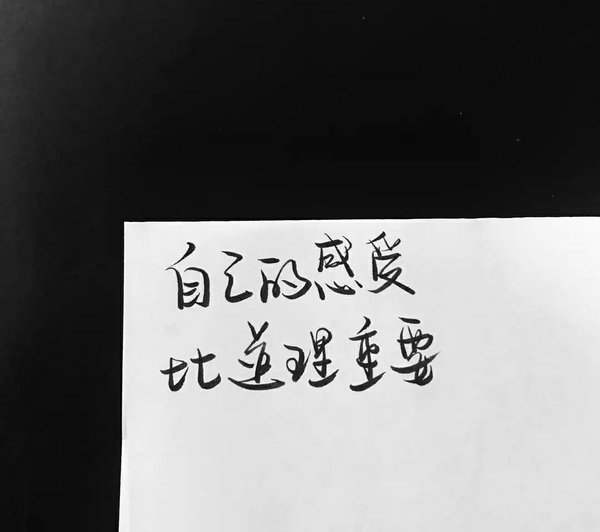 自己的感受
比道理重要